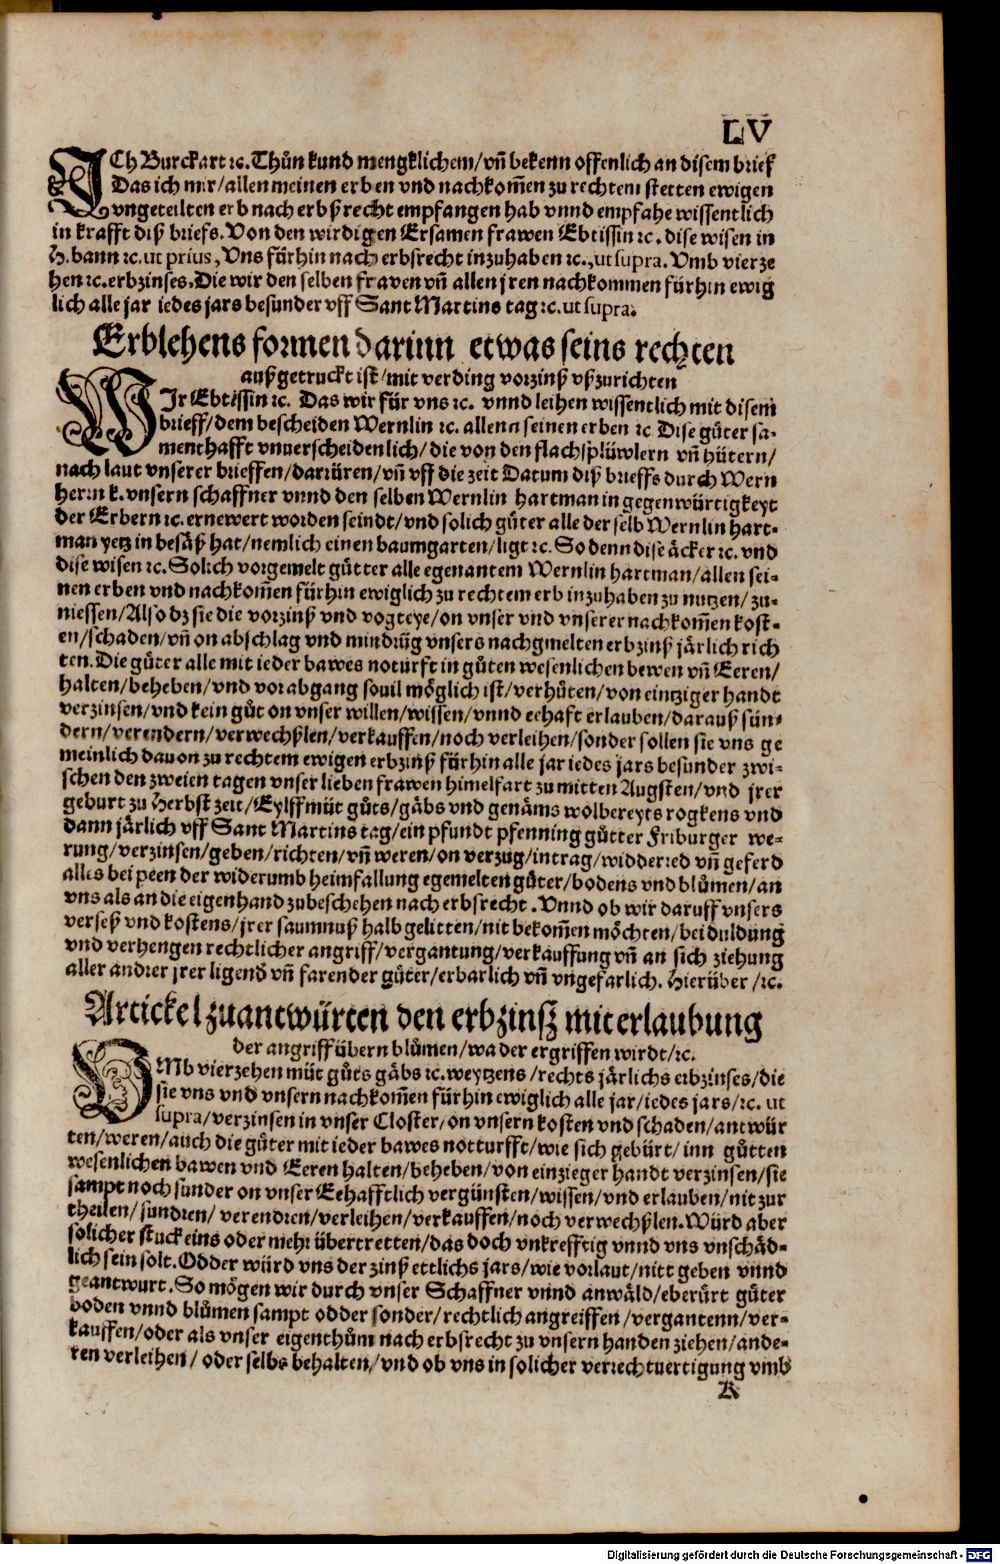 LV
ICh Burckart ꝛc. Thůn kund mengklichem/vñ bekenn offenlich an disem brief
Das ich mir/allen meinen erben vnd nachkom̃en zu rechtem stetten ewigen
vngeteilten erb nach erbß recht empfangen hab vnnd empfahe wissentlich
in krafft diß briefs. Von den wirdigen Ersamen frawen Ebtissin ꝛc. dise wisen in
H. bann ꝛc. ut prius, Vns fürhin nach erbsrecht inzuhaben ꝛc., ut supra. Vmb vierze
hen ꝛc. erbzinses. Die wir den selben fraven vñ allen jren nachkommen fürhin ewig
lich alle jar iedes jars besunder vff Sant Martins tag ꝛc. ut supra.
Erblehens formen darinn etwas seins rechten
außgetruckt ist/mit verding vorzinß vßzurichten
WIr Ebtissin ꝛc. Das wir für vns ꝛc. vnnd leihen wissentlich mit disem
brieff/dem bescheiden Wernlin ꝛc. allenn seinen erben ꝛc Dise güter sa-
menthafft vnuerscheidenlich/die von den flachßplüwlern vñ hütern/
nach laut vnserer brieffen/darüren/vñ vff die zeit Datum diß brieffs durch Wern
herrn k. vnsern schaffner vnnd den selben Wernlin hartman in gegenwürtigkeyt
der Erbern ꝛc. ernewert worden seindt/vnd solich güter alle der selb Wernlin hart-
man yetz in besäß hat/nemlich einen baumgarten/ligt ꝛc. So denn dise äcker ꝛc. vnd
dise wisen ꝛc. Solich vorgemelt gütter alle egenantem Wernlin hartman/allen sei-
nen erben vnd nachkom̃en fürhin ewiglich zu rechtem erb inzuhaben zu nutzen/zu-
niessen/Also dz sie die vorzinß vnd vogteye/on vnser vnd vnserer nachkom̃en kost-
en/schaden/vñ on abschlag vnd mindrũg vnsers nachgmelten erbzinß järlich rich
ten. Die güter alle mit ieder bawes noturft in gůten wesenlichen bewen vñ Eeren/
halten/beheben/vnd vor abgang souil möglich ist/verhüten/von eintziger handt
verzinsen/vnd kein gůt on vnser willen/wissen/vnnd eehaft erlauben/darauß sün-
dern/verendern/verwechßlen/verkauffen/noch verleihen/sonder sollen sie vns ge
meinlich dauon zu rechtem ewigen erbzinß fürhin alle jar iedes jars besunder zwi-
schen den zweien tagen vnser lieben frawen himelfart zu mitten Augsten/vnd jrer
geburt zu Herbst zeit/Eylff müt gůts/gäbs vnd genäms wolbereyts rogkens vnd
dann järlich vff Sant Martins tag/ein pfundt pfenning gůtter Friburger we-
rung/verzinsen/geben/richten/vñ weren/on verzug/intrag/widderred vñ geferd
alles bei peen der widerumb heimfallung egemelten güter/bodens vnd blůmen/an
vns als an die eigenhand zubeschehen nach erbsrecht. Vnnd ob wir daruff vnsers
verseß vnd kostens/jrer saumnuß halb gelitten/nit bekom̃en möchten/bei duldung
vnd verhengen rechtlicher angriff/vergantung/verkauffung vñ an sich ziehung
aller andrer jrer ligend vñ farender güter/erbarlich vñ vngefarlich. Hierüber/ꝛc.
Artickel zuantwürten den erbzinß mit erlaubung
der angriff übern blůmen/wa der ergriffen wirdt/ꝛc.
VMb vierzehen müt gůts gäbs ꝛc. weytzens/rechts järlichs erbzinses/die
sie vns vnd vnsern nachkom̃en fürhin ewiglich alle jar/iedes jars/ꝛc. ut
supra/verzinsen in vnser Closter/on vnsern kosten vnd schaden/antwür
ten/weren/auch die güter mit ieder bawes notturfft/wie sich gebürt/inn gůtten
wesenlichen bawen vnd Eeren halten/beheben/von einzieger handt verzinsen/sie
sampt noch sunder on vnser Eehafftlich vergünsten/wissen/vnd erlauben/nit zur
theilen/sundren/verendren/verleihen/verkauffen/noch verwechßlen. Würd aber
solicher stuck eins oder mehr übertretten/das doch vnkrefftig vnnd vns vnschäd-
lich sein solt. Odder würd vns der zinß ettlichs jars/wie vorlaut/nitt geben vnnd
geantwurt. So mögen wir durch vnser Schaffner vnnd anwäld/eberürt güter
boden vnnd blůmen sampt odder sonder/rechtlich angreiffen/vergantenn/ver-
kauffen/oder als vnser eigenthům nach erbsrecht zu vnsern handen ziehen/ande-
ren verleihen/oder selbs behalten/vnd ob vns in solicher verrechtuertigung vmb
K
Digitalisierung gefördert durch die Deutsche Forschungsgemeinschaft - DFG